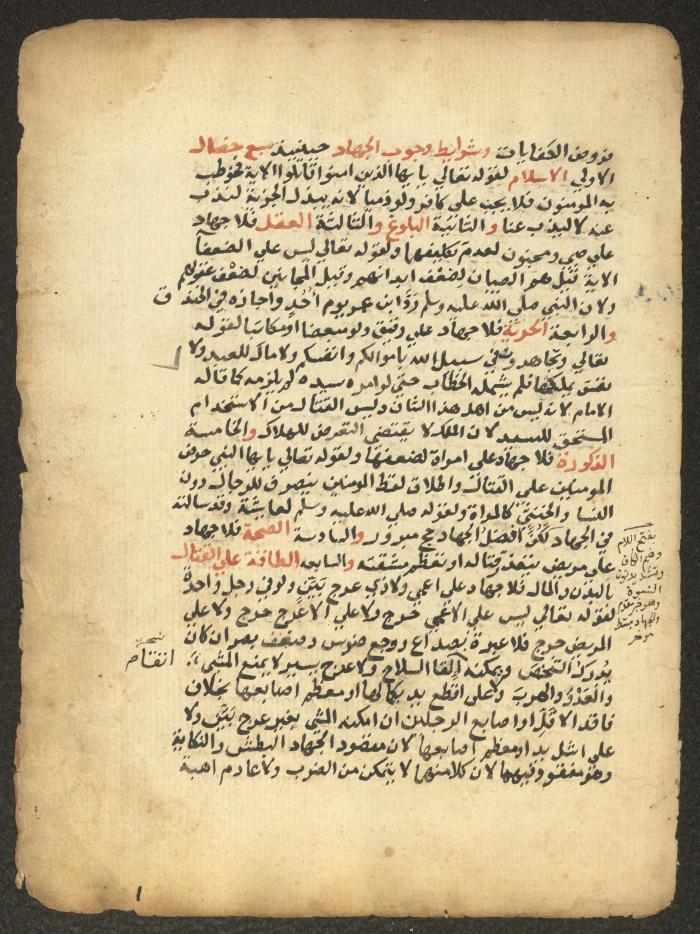 فروض الكفايات وشرايط وجوب الجهاد حينيذ سبع خصال
الاولي الاسلام لقوله تعالي يا يها الذين امنوا قاتلوا الاية فخوطب
به المومنون فلا يجب علي كافر ولو ذميا لانه يبذل الجزية لنذب
عنه لا ليذب عنا والثانية البلوغ والثالثة العقل فلا جهاد
علي صبي ومجنون لعدم تكليفهما ولقوله تعالي ليس علي الضعفا
الاية قيل هم الصبيان لضعف ابدانهم وقيل المجانين لضعف عقولهم
ولان النبي صلي الله عليه وسلم رد ابن عمر يوم احد واجازه في الخندق
والرابعة الحرية فلا جهاد علي رقيق ولو مبعضا او مكاتبا لقوله
تعالي وتجاهدون في سبيل الله باموالكم وانفسكم ولا مال للعبد ولا
نفس يملكها فلم يشمله الخطاب حتي لو امره سيده لم يلزمه كما قاله
الامام لانه ليس من اهل هذا الشان وليس القتال من الاستخدام
المستحق للسيد لان الملك لا يقتضي التعرض للهلاك والخامسة
الذكورة فلا جهاد علي امراة لضعفها ولقوله تعالي يا يها النبي حرض
المومنين علي القتال واطلاق لفظ المومنين ينصرف للرجال دون
النسا والخنثي كالمراة ولقوله صلي الله عليه وسلم لعايشة وقد سالته
في الجهاد لكن افضل الجهاد حج مبرور والسادسة الصحة فلا جهاد
علي مريض يتعذر قتاله او تعظم مشقته والسابعه الطاقة علي القتال
بالبدن والمال فلا جهاد علي اعمي ولا ذي عرج بين ولو في رجل واحدة
لقوله تعالي ليس علي الاعمي حرج ولا علي الاعرج حرج ولا علي
المريض حرج فلا عبرة بصداع ووجع ضرس وضعف بصر ان كان
يدرك الشخص ويمكنه اتقا السلاح ولا عرج يسير لا يمنع المشي
والعدو والهرب وعلي اقطع يد بكمالها او معظم اصابعها بخلاف
فاقد الاقل او اصابع الرجلين ان امكنه المشي بغير عرج بين ولا
علي اشل يد او معظم اصابعها لان مقصود الجهاد البطش والنكاية
وهو مفقود فيهما لان كلا منهما لا يتمكن من الضرب ولا عادم اهبة
بفتح اللام
وضم الكاف
وتشديد نون
النسوة